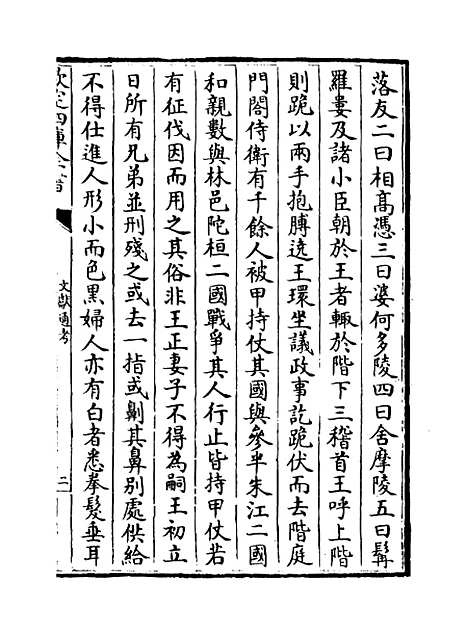 落友二曰相髙憑三曰婆何多陵四曰舍摩陵五曰髯
羅婁及諸小臣朝於王者輙於階下三稽首王呼上階
則跪以兩手抱膊遶王環坐議政事訖跪伏而去階庭
門閤侍衛有千餘人被甲持仗其國與參半朱江二國
和親數與林邑陀桓二國戰爭其人行止皆持甲仗若
有征伐因而用之其俗非王正妻子不得為嗣王初立
日所有兄弟並刑殘之或去一指或劓其鼻别處供給
不得仕進人形小而色黒婦人亦有白者悉拳髮垂耳
欽定四庫全書
文獻通考
二